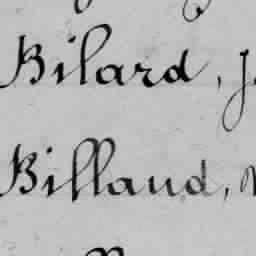 Bilard, J
Billaud,